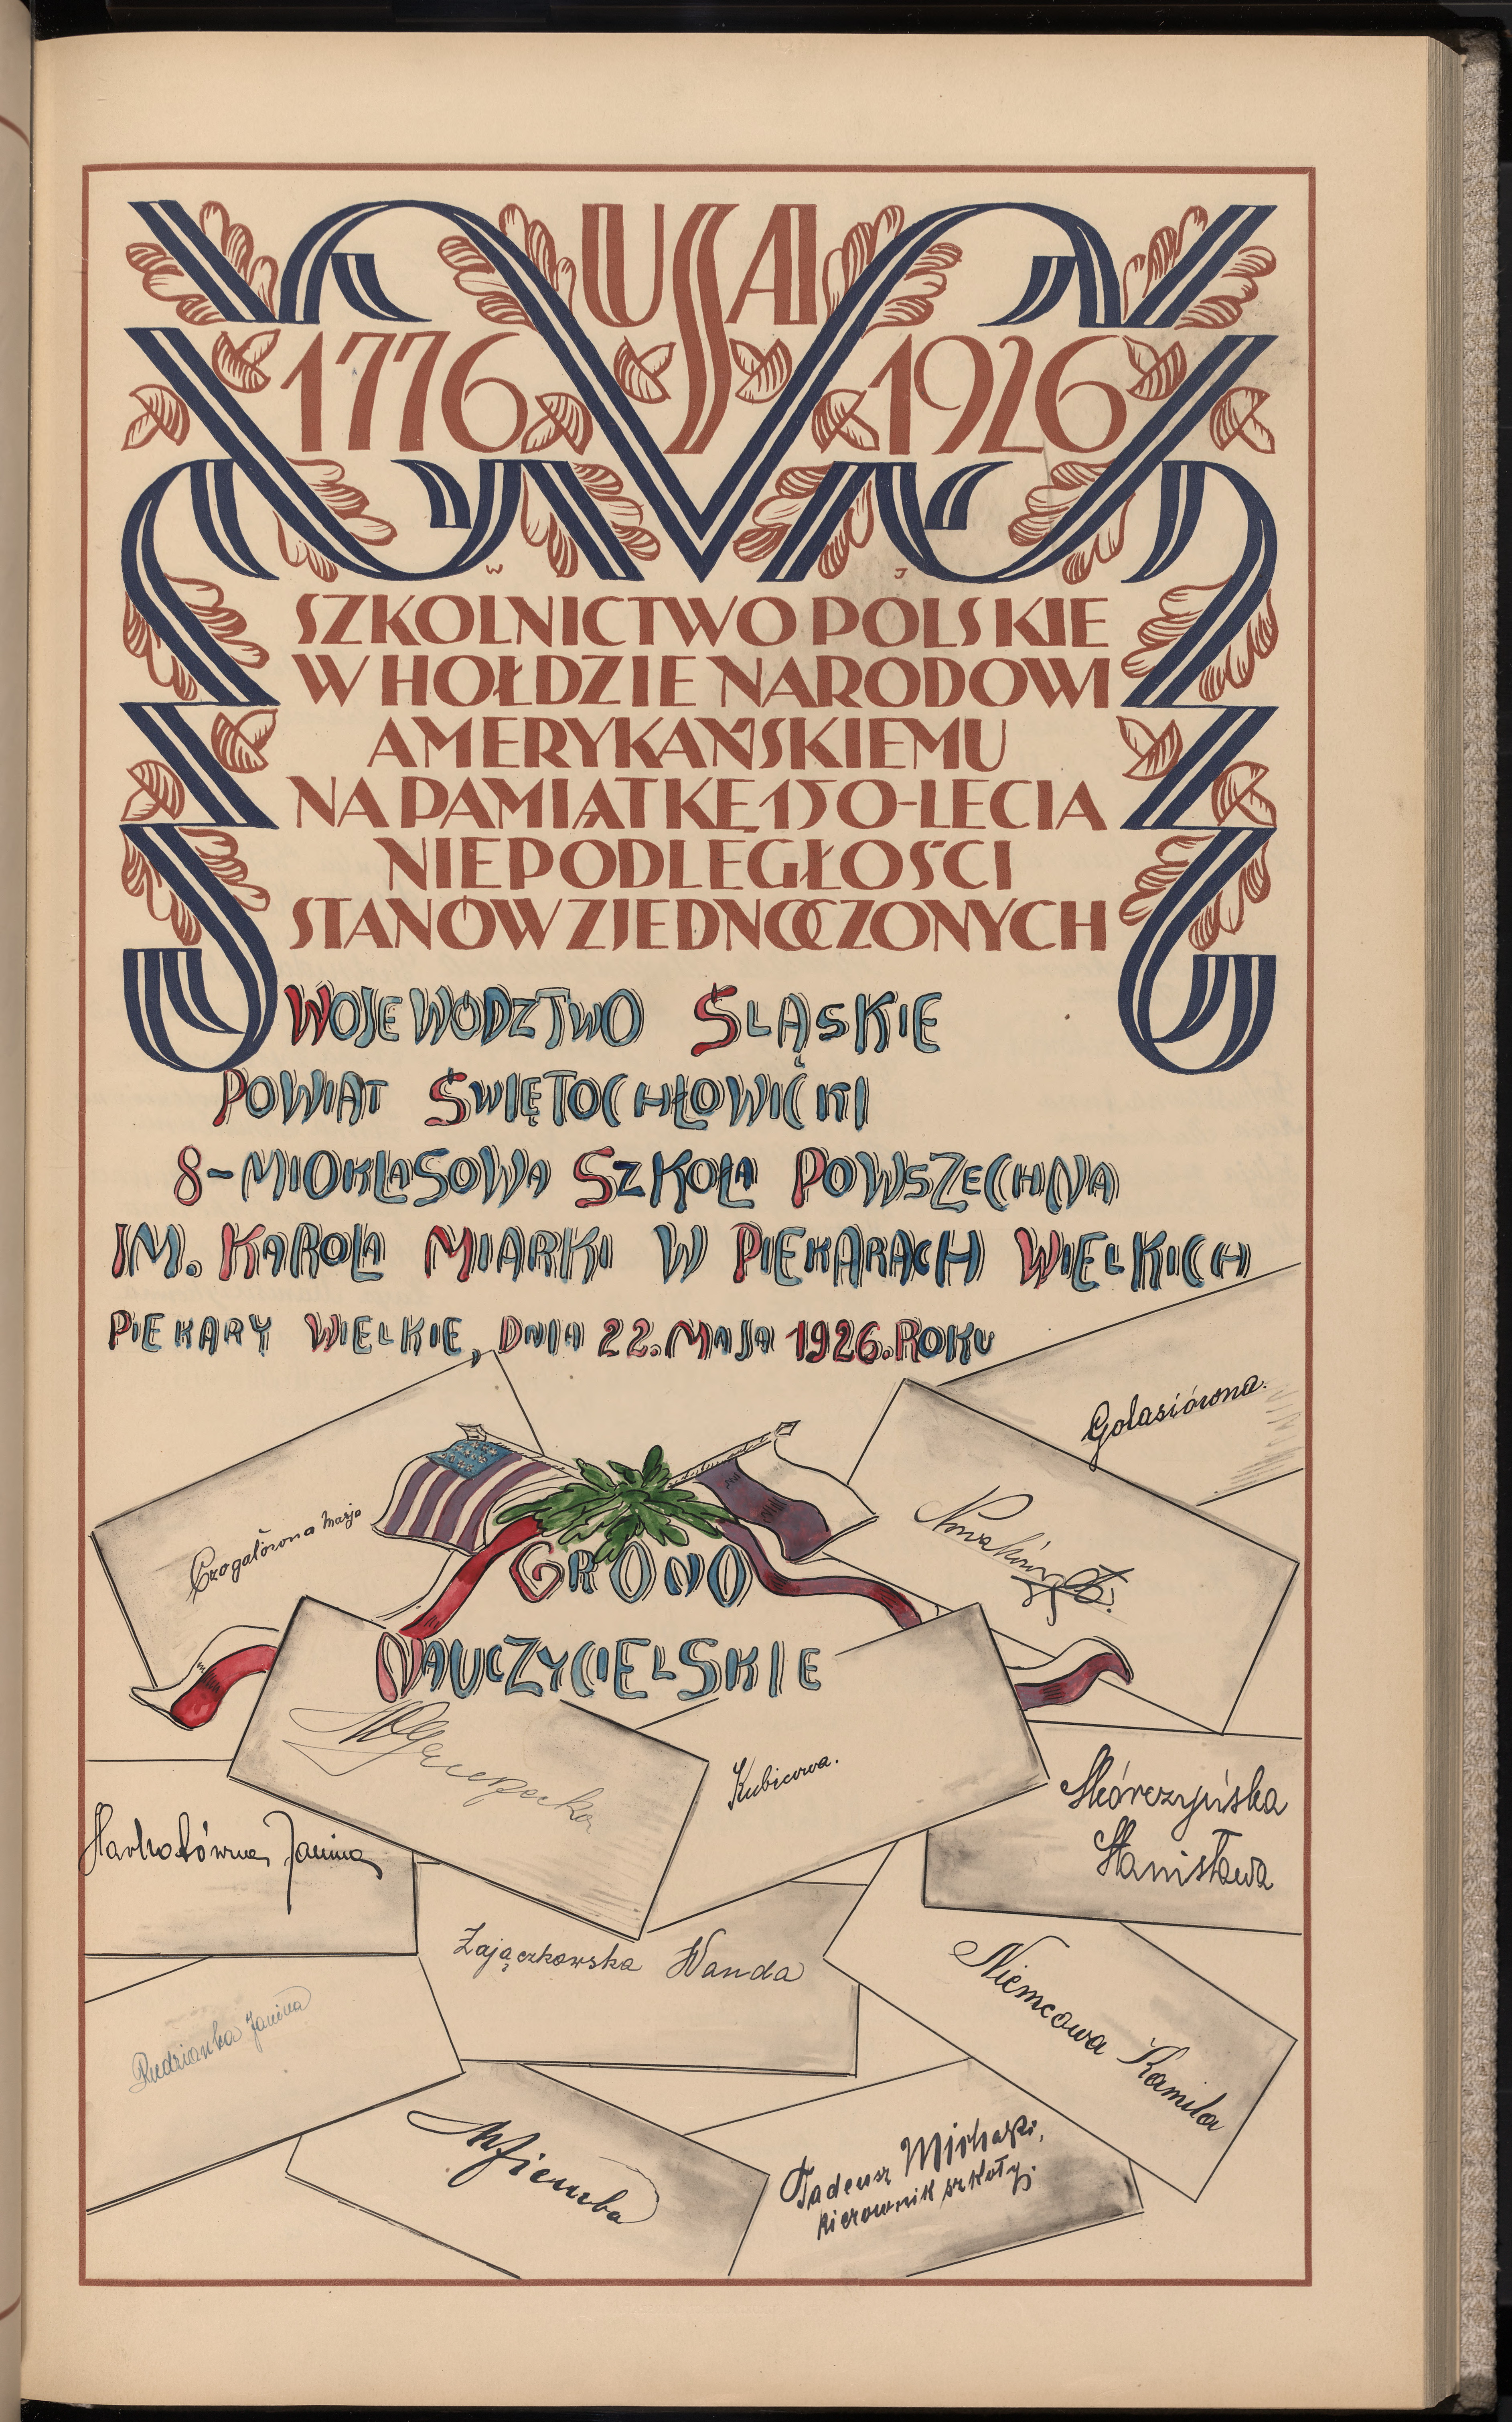 USA
1776 1926
W J
SZKOLNICTWO POLSKIE
W HOŁDZIE NARODOWI
AMERYKAŃSKIEMU
NA PAMIĄTKĘ 150-LECIA
NIEPODLEGŁOŚCI
STANÓW ZJEDNOCZONYCH
WOJEWÓDZTWO ŚLĄSKIE
POWIAT ŚWIĘTOCHŁOWICKI
8-MIOKLASOWA SZKOŁA POWSZECHNA
IM. KAROLA MIARKI W PIEKARACH WIELKICH
PIEKARY WIELKIE, DNIA 22. MAJA 1926. ROKU
Golasiówna.
Czogałówna Marja
GRONO
NAUCZYCIELSKIE
Kubicowa.
Skórczyńska
Stanisława
Janina
Zajączkowska Wanda
Niemcowa Kamila
Rudzianka Janina
Tadeusz Michalski,
kierownik szkoły.